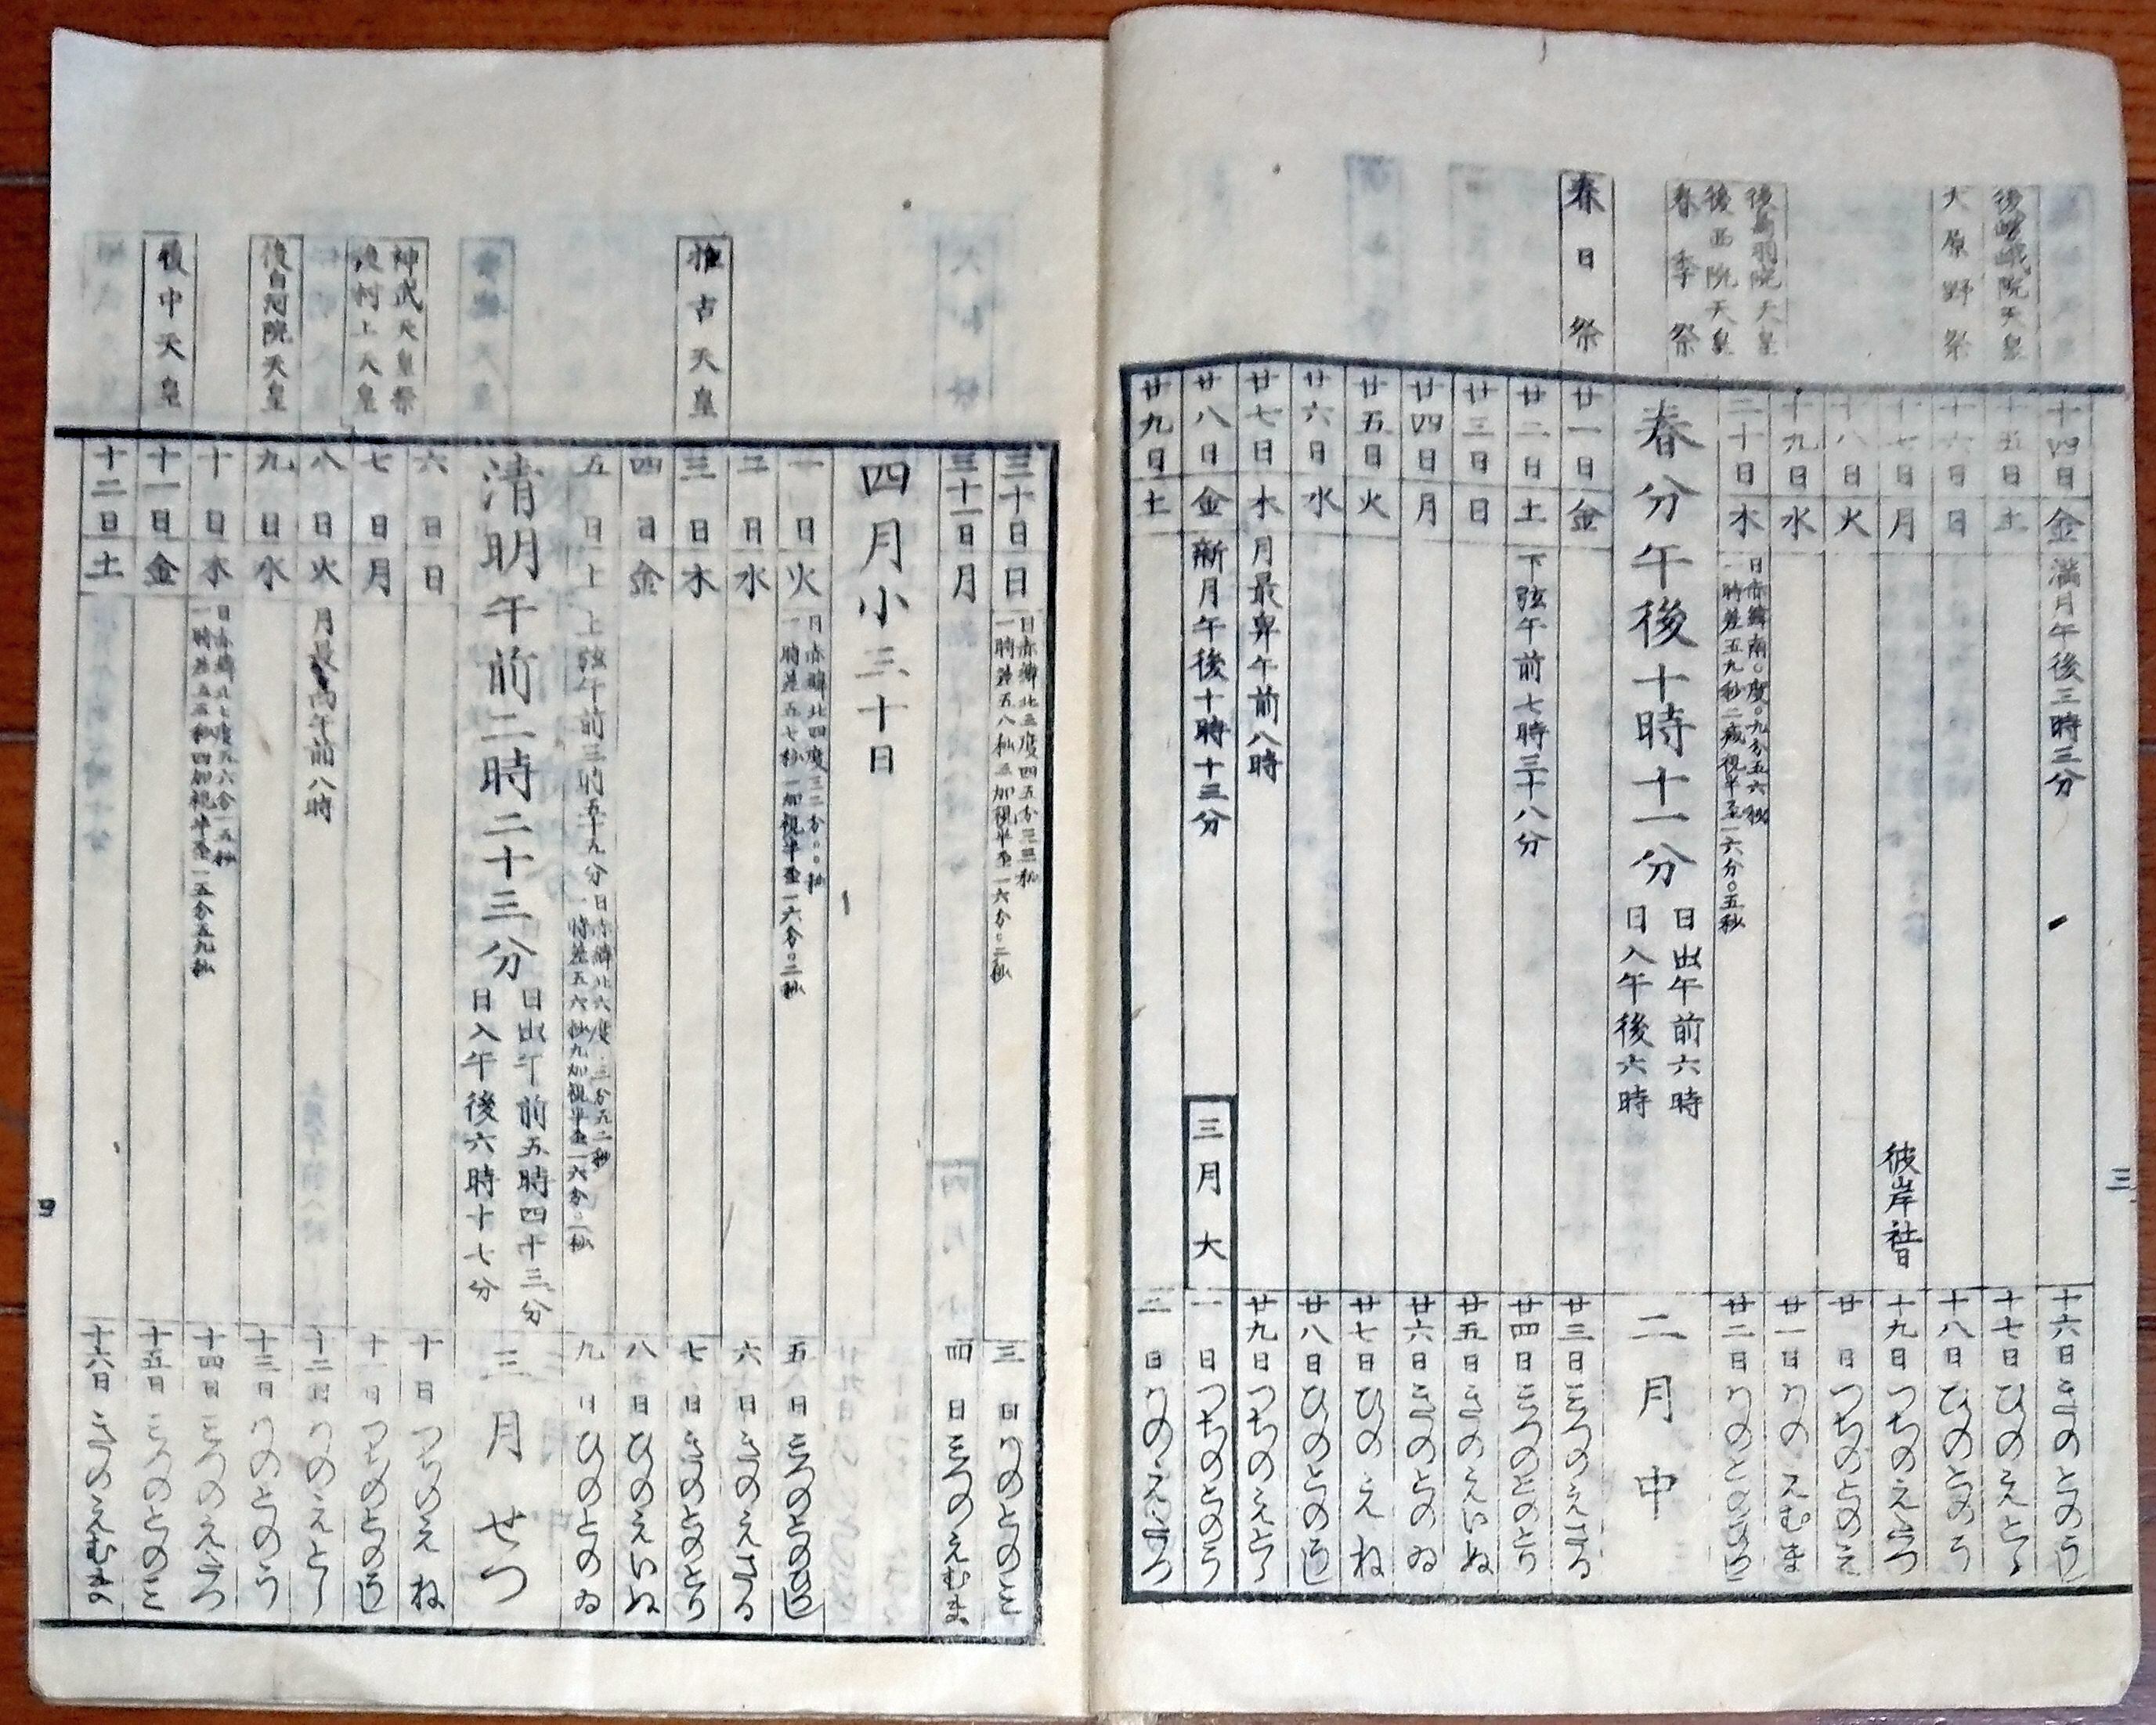 後嵯峨院天皇
大原野祭
後鳥羽院天皇
後西院天皇
春季祭
春日祭
十四日 金 満月午後三時三分 十六日 きのとのうし
十五日 土 十七日 ひのえとら
十六日 日 十八日 ひのとのう
十七日 月 彼岸 社日 十九日 つちのえたつ
十八日 火 廿日 つちのとのみ
十九日 水 廿一日 かのえむま
二十日 木 日赤緯南〇度〇九分五六秒 廿二日 かのとのひつじ
一時差五九秒二減視半径一六分〇五秒
春分午後十時十一分 日出午前六時 二月中
日入午後六時
廿一日 金 廿三日 みつのえさる
廿二日 土 下弦午前七時三十八分 廿四日 みつのとのとり
廿三日 日 廿五日 きのえいぬ
廿四日 月 廿六日 きのとのゐ
廿五日 火 廿七日 ひのえね
廿六日 水 廿八日 ひのとのうし
廿七日 木 月最卑午前八時 廿九日 つちのえとら
廿八日 金 新月午後十時十三分 三月大 一日 つちのとのう
廿九日 土 二日 かのえたつ
三
推古天皇
神武天皇祭
後村上天皇
後白河院天皇
履中天皇
三十日 日 日赤緯北三度四五分三三秒 三日 かのとのみ
一時差五八秒五加視半径一六分〇二秒
三十一日 月 四日 みつのえむま
四月小三十日
一日 火 日赤緯北四度三二分〇〇秒 五日 みつのとのひつじ
一時差五七秒一加視半径一六分〇二秒
二日 水 六日 きのえさる
三日 木 七日 きのとのとり
四日 金 八日 ひのえいぬ
五日 土 上弦午前三時五十九分 日赤緯北六度〇三分五二秒 九日 ひのとのゐ
一時差五六秒九加視半径一六分〇一秒
清明午前二時二十三分 日出午前五時四十三分 三月せつ
日入午後六時十七分
六日 日 十日 つちのえね
七日 月 十一日 つちのとのうし
八日 火 月最高午前八時 十二日 かのえとら
九日 水 十三日 かのとのう
十日 木 日赤緯北七度五六分一五秒 十四日 みつのえたつ
一時差五五秒四加視半径一五分五九秒
十一日 金 十五日 みつのとのみ
十二日 土 十六日 きのえむま
四